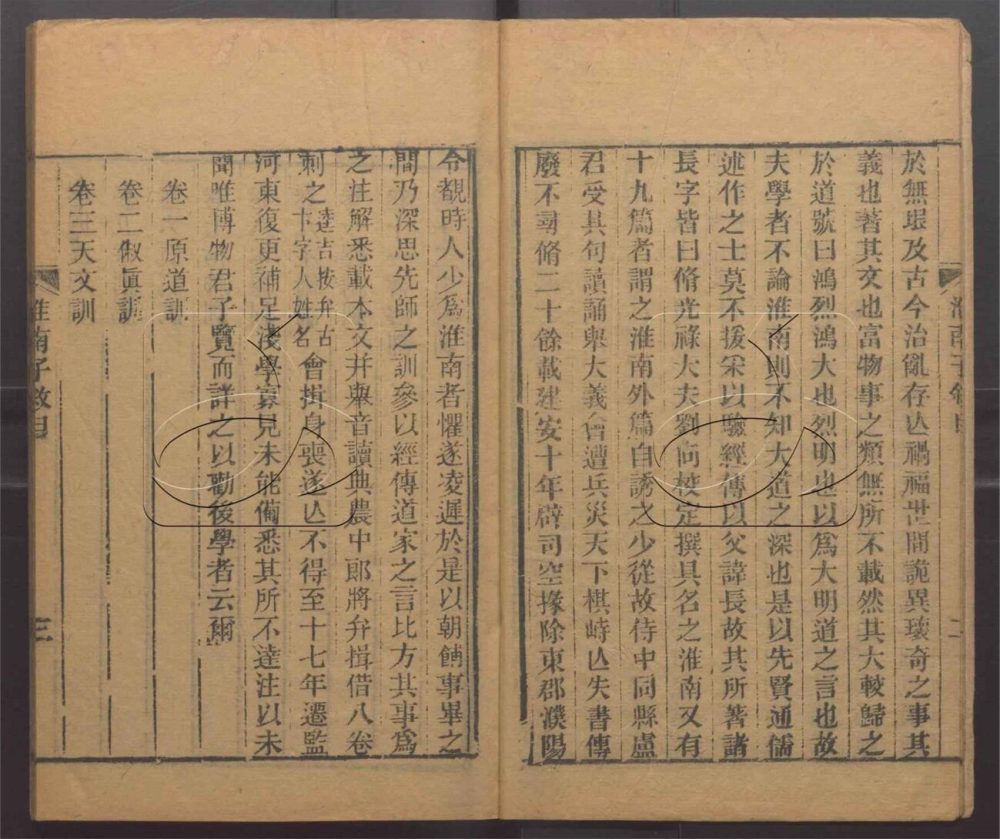 於無垠及古今治亂存亾禍福世間詭異瓌奇之事其
義也著其文也富物事之類無所不載然其大較歸之
於道號曰鴻烈鴻大也烈明也以爲大明道之言也故
夫學者不論淮南則不知大道之深也是以先賢通儒
述作之士莫不援采以驗經傳以父諱長故其所著諸
長字皆曰脩光祿大夫劉向校定撰具名之淮南又有
十九篇者謂之淮南外篇自誘之少從故侍中同縣盧
君受其句讀誦舉大義會遭兵災天下棋峙亾失書傳
廢不尋脩二十餘載建安十年辟司空掾除東郡濮陽
淮南子敘目
二
令覩時人少爲淮南者懼遂凌遲於是以朝餔事畢之
間乃深思先師之訓參以經傳道家之言比方其事爲
之注解悉載本文并舉音讀典農中郎將弁揖借八卷
刺之逵吉按弁古卞字人姓名會揖身喪遂亾不得至十七年遷監
河東復更補足淺學寡見未能備悉其所不達注以未
聞唯博物君子覽而詳之以勸後學者云爾
卷一原道訓
卷二俶眞訓
卷三天文訓
淮南子敘目
三